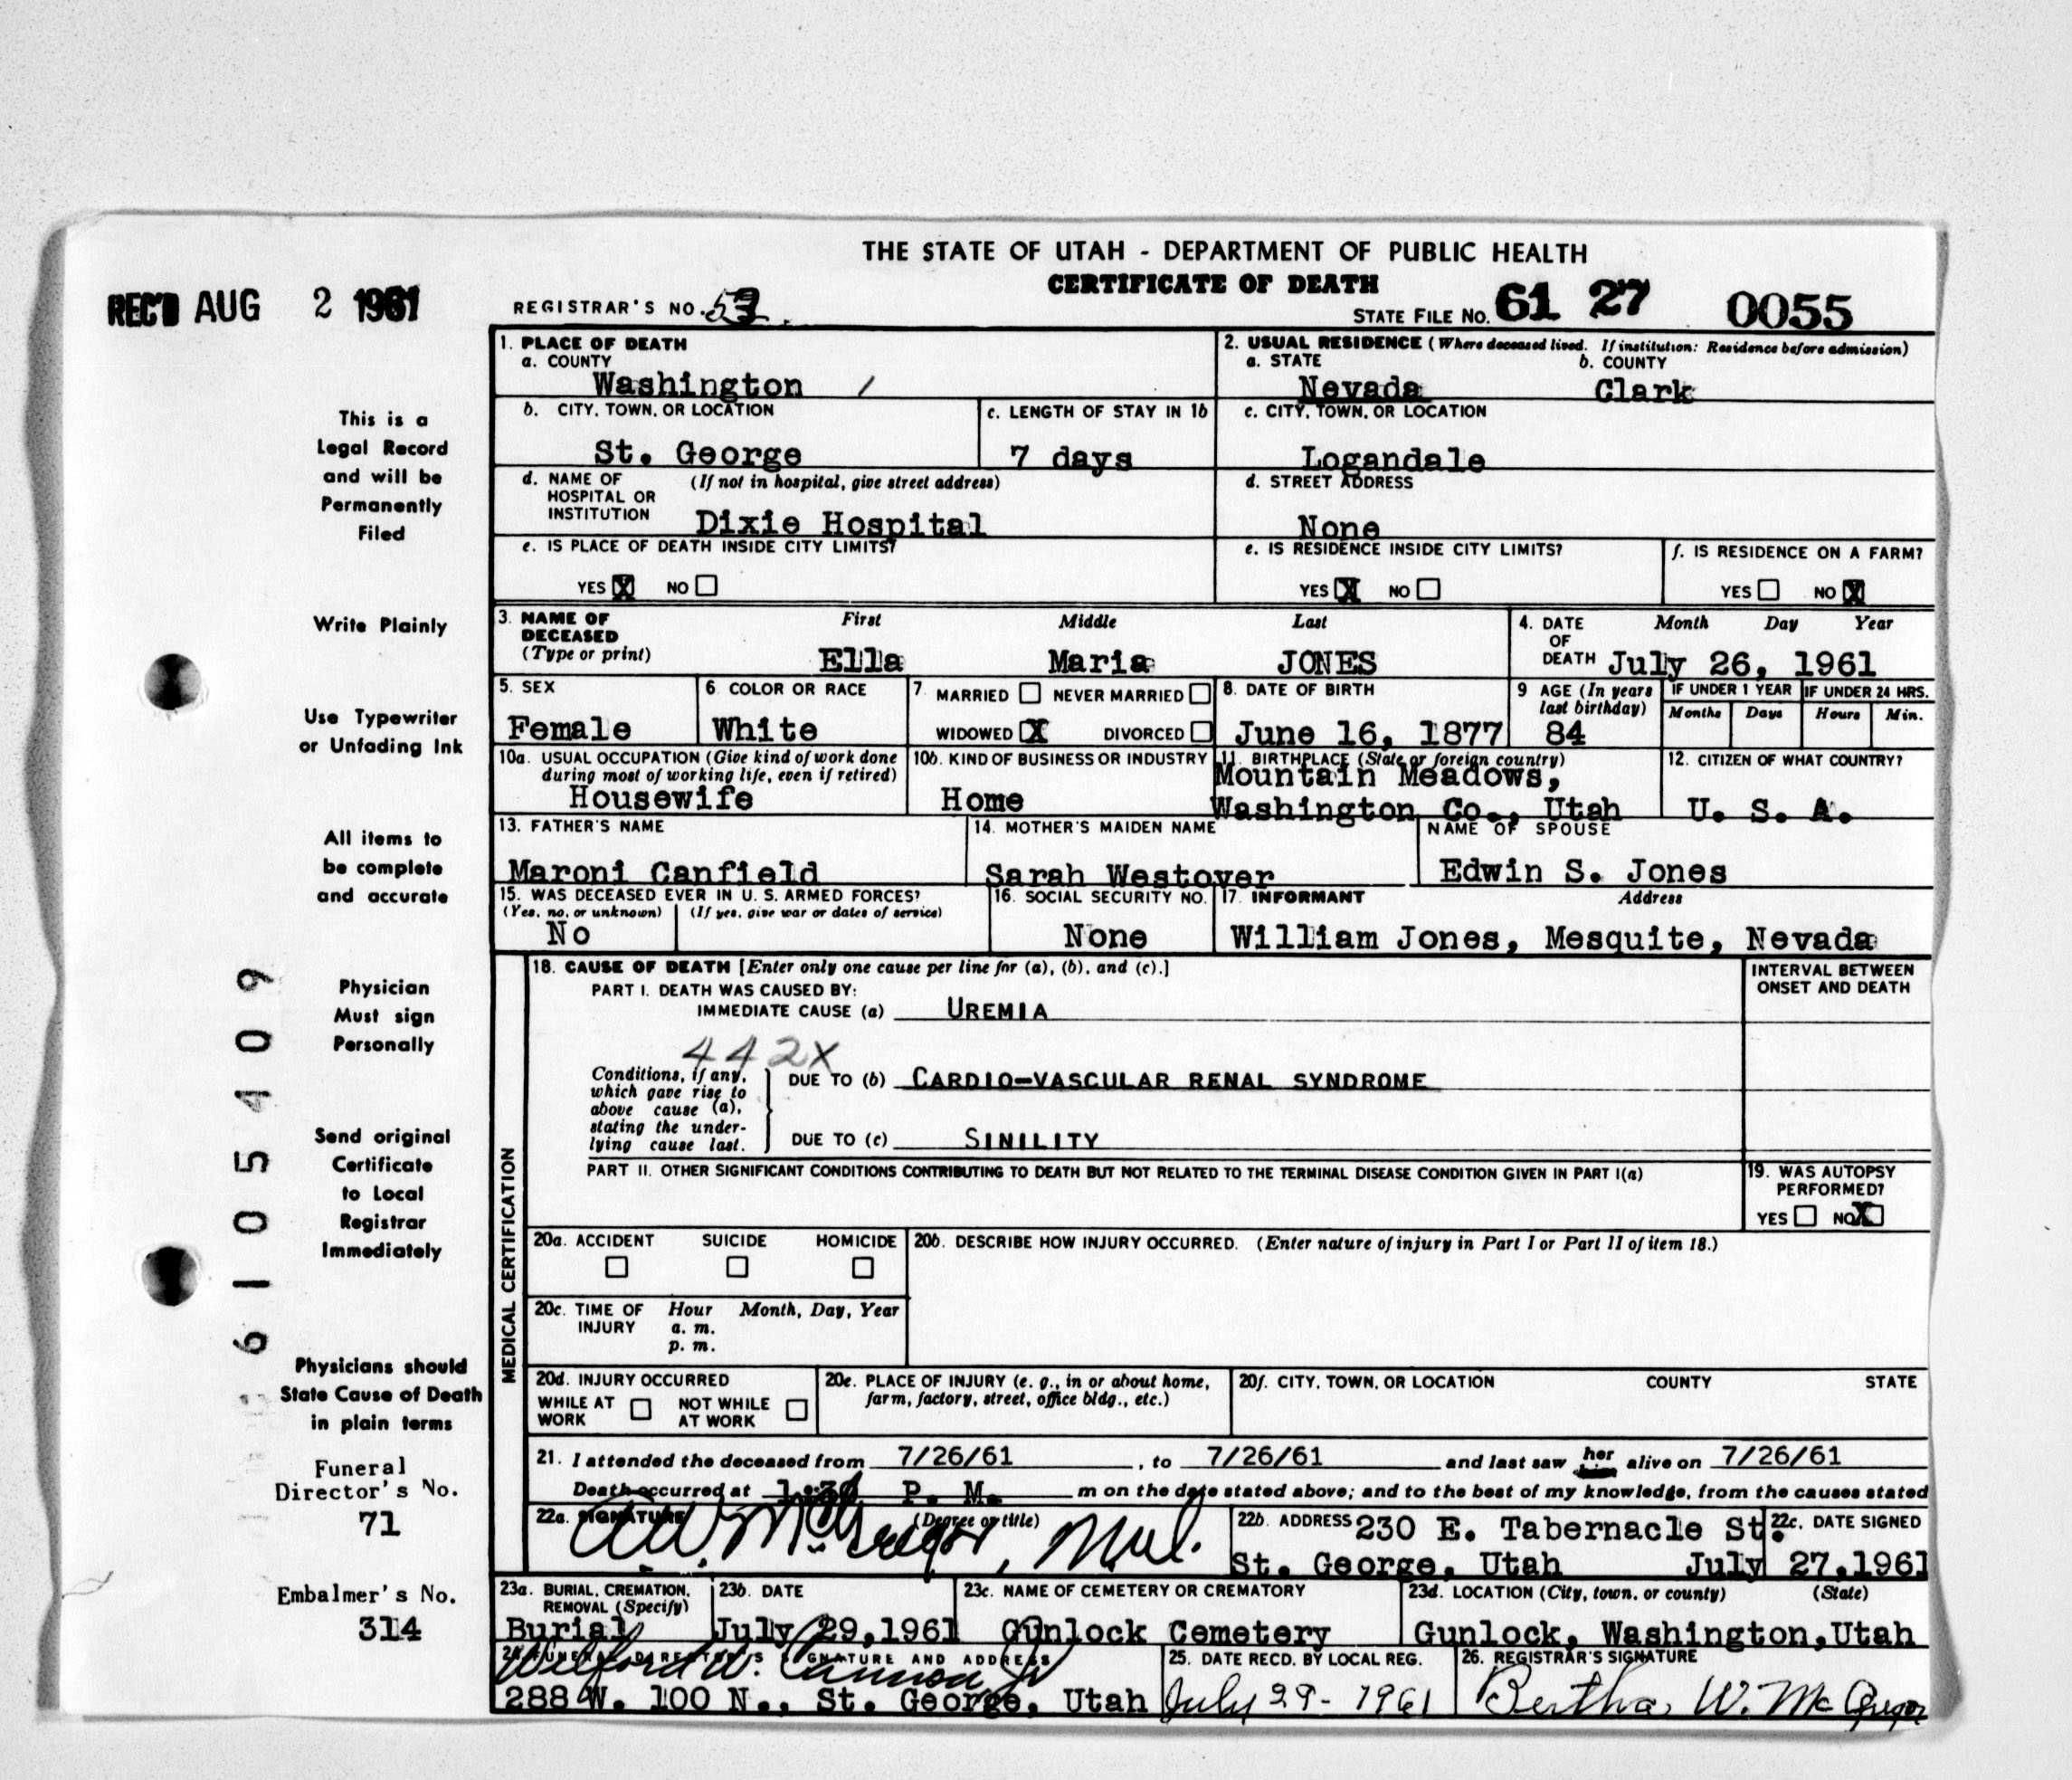 THE STATE OF UTAH - DEPARTMENT OF PUBLIC HEALTH
CERTIFICATE OF DEATH
REC'D AUG 2 1961
REGISTRAR'S NO.
STATE FILE NO. 61 27 0055
1. PLACE OF DEATH
a. COUNTY
Washington
2. USUAL RESIDENCE (Where deceased lived. If institution: Residence before admission)
a. STATE b. COUNTY
Nevada Clark
b. CITY, TOWN, OR LOCATION
St. George
c. LENGTH OF STAY IN 1b
7 days
c. CITY, TOWN, OR LOCATION
Logandale
d. NAME OF HOSPITAL OR INSTITUTION (If not in hospital, give street address)
Dixie Hospital
d. STREET ADDRESS
None
e. IS PLACE OF DEATH INSIDE CITY LIMITS?
YES X NO
e. IS RESIDENCE INSIDE CITY LIMITS?
YES X NO
f. IS RESIDENCE ON A FARM?
YES NO X
3. NAME OF DECEASED (Type or print)
First Middle Last
Ella Maria JONES
4. DATE OF DEATH
Month Day Year
July 26, 1961
5. SEX
Female
6 COLOR OR RACE
White
7. MARRIED NEVER MARRIED
WIDOWED X DIVORCED
8. DATE OF BIRTH
June 16, 1877
9 AGE (In years last birthday)
84
IF UNDER 1 YEAR
Months Days
IF UNDER 24 HRS.
Hours Min.
10a. USUAL OCCUPATION (Give kind of work done during most of working life, even if retired)
Housewife
10b. KIND OF BUSINESS OR INDUSTRY
Home
11. BIRTHPLACE (State or foreign country)
Mountain Meadows,
Washington Co., Utah
12. CITIZEN OF WHAT COUNTRY?
U. S. A.
13. FATHER'S NAME
Maroni Canfield
14. MOTHER'S MAIDEN NAME
Sarah Westover
NAME OF SPOUSE
Edwin S. Jones
15. WAS DECEASED EVER IN U. S. ARMED FORCES?
(Yes, no, or unknown) (If yes, give war or dates of service)
No
16. SOCIAL SECURITY NO.
None
17. INFORMANT Address
William Jones, Mesquite, Nevada
MEDICAL CERTIFICATION
18. CAUSE OF DEATH [Enter only one cause per line for (a), (b), and (c).]
INTERVAL BETWEEN ONSET AND DEATH
PART I. DEATH WAS CAUSED BY:
IMMEDIATE CAUSE (a) UREMIA
442X
Conditions, if any, which gave rise to above cause (a), stating the underlying cause last.
DUE TO (b) CARDIO-VASCULAR RENAL SYNDROME
DUE TO (c) SINILITY
PART II. OTHER SIGNIFICANT CONDITIONS CONTRIBUTING TO DEATH BUT NOT RELATED TO THE TERMINAL DISEASE CONDITION GIVEN IN PART I(a)
19. WAS AUTOPSY PERFORMED?
YES NO X
20a. ACCIDENT SUICIDE HOMICIDE
20b. DESCRIBE HOW INJURY OCCURRED. (Enter nature of injury in Part I or Part II of item 18.)
20c. TIME OF INJURY Hour Month, Day, Year
a. m.
p. m.
20d. INJURY OCCURRED
WHILE AT WORK NOT WHILE AT WORK
20e. PLACE OF INJURY (e. g., in or about home, farm, factory, street, office bldg., etc.)
20f. CITY, TOWN, OR LOCATION COUNTY STATE
21. I attended the deceased from 7/26/61, to 7/26/61 and last saw her alive on 7/26/61
Death occurred at 1:30 P. M. m on the date stated above; and to the best of my knowledge, from the causes stated
22a. SIGNATURE (Degree or title)
A.W. McGregor, M.D.
22b. ADDRESS 230 E. Tabernacle St.
St. George, Utah
22c. DATE SIGNED
July 27,1961
23a. BURIAL, CREMATION, REMOVAL (Specify)
Burial
23b. DATE
July 29,1961
23c. NAME OF CEMETERY OR CREMATORY
Gunlock Cemetery
23d. LOCATION (City, town, or county) (State)
Gunlock, Washington,Utah
24. FUNERAL DIRECTOR'S SIGNATURE AND ADDRESS
Wilford W. Cannon Jr
288 W. 100 N., St. George, Utah
25. DATE RECD. BY LOCAL REG.
July 29- 1961
26. REGISTRAR'S SIGNATURE
Bertha W. McGregor
This is a
Legal Record
and will be
Permanently
Filed
Write Plainly
Use Typewriter
or Unfading Ink
All items to
be complete
and accurate
Physician
Must sign
Personally
Send original
Certificate
to Local
Registrar
Immediately
Physicians should
State Cause of Death
in plain terms
Funeral
Director's No.
71
Embalmer's No.
314
6105409